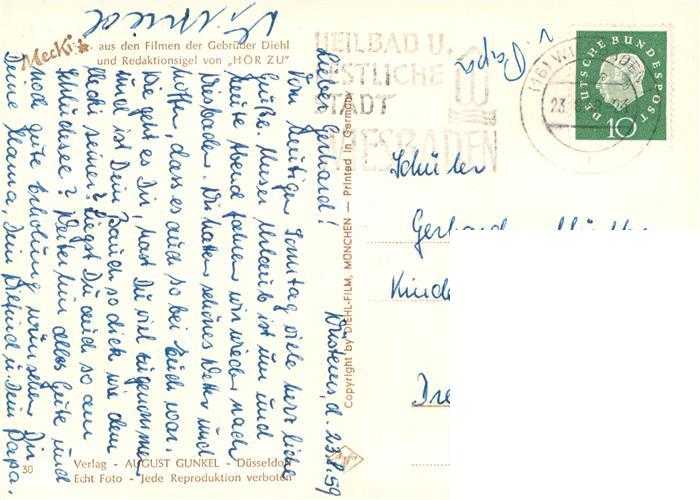 Mecki
aus den Filmen der Gebrüder Diehl
und Redaktionsigel von „HÖR ZU"
HEILBAD U.
FESTLICHE
STADT
WIESBADEN
DEUTSCHE BUNDESPOST
10
u. Papa
Lieber Gerhard!
d. 23.8.59
Vom heutigen Sonntag viele herzliche
Grüße. Unser Urlaub ist um und
heute Abend fahren wir wieder nach
Wiesbaden. Wir hatten schönes Wetter und
hoffen, dass es auch so bei Euch war.
Wie geht es Dir, hast Du viel zugenommen
und ist Dein Bauch so dick wie dem
Mecki seiner? Liegst Du auch so am
Schluchsee? Weiterhin alles Gute und
noch gute Erholung wünschen Dir
Deine Mama, Dein u. Dein Papa.
Schüler
Gerhard
Kinde
Dre
Copyright by DIEHL-FILM, MÜNCHEN — Printed in Germany
30
Verlag - AUGUST GUNKEL - Düsseldo
Echt Foto - Jede Reproduktion verboten